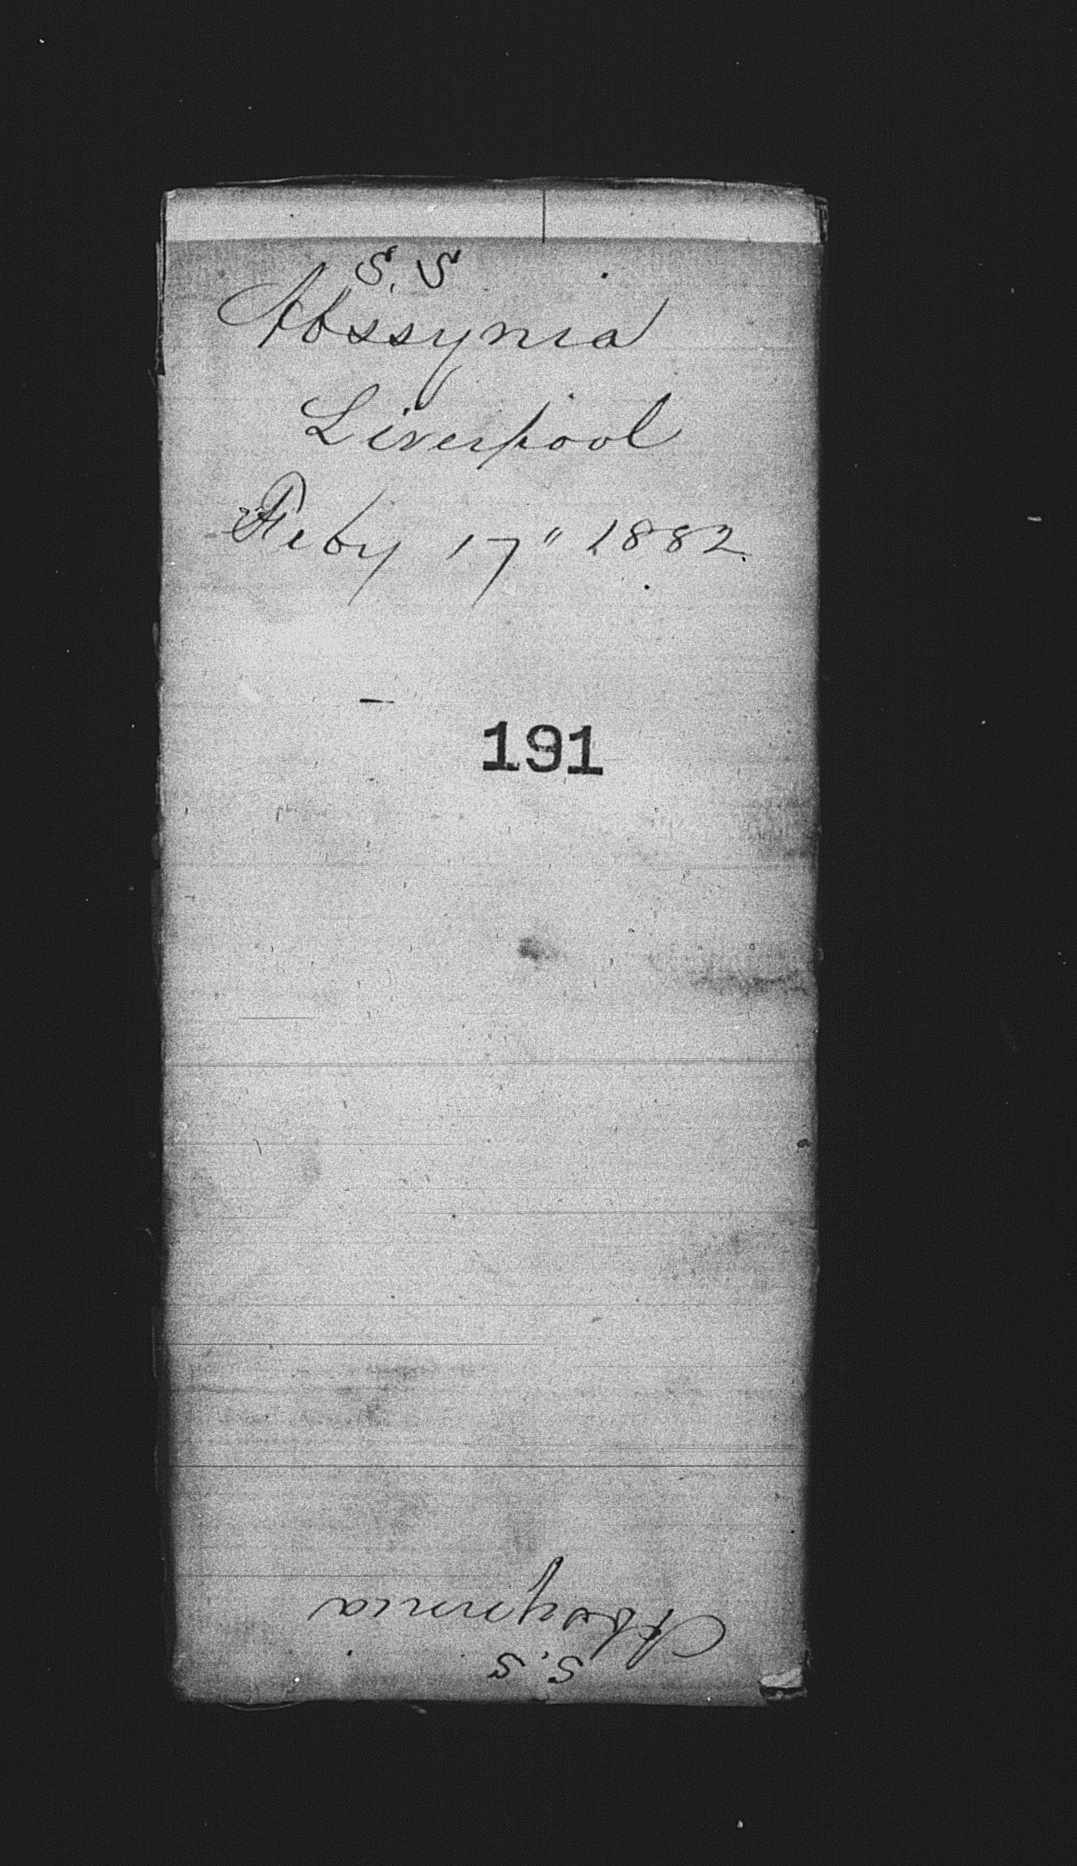 S.S
Abssynia
Liverpool
Feby 17" 1882.
191
S.S
Abssynnia